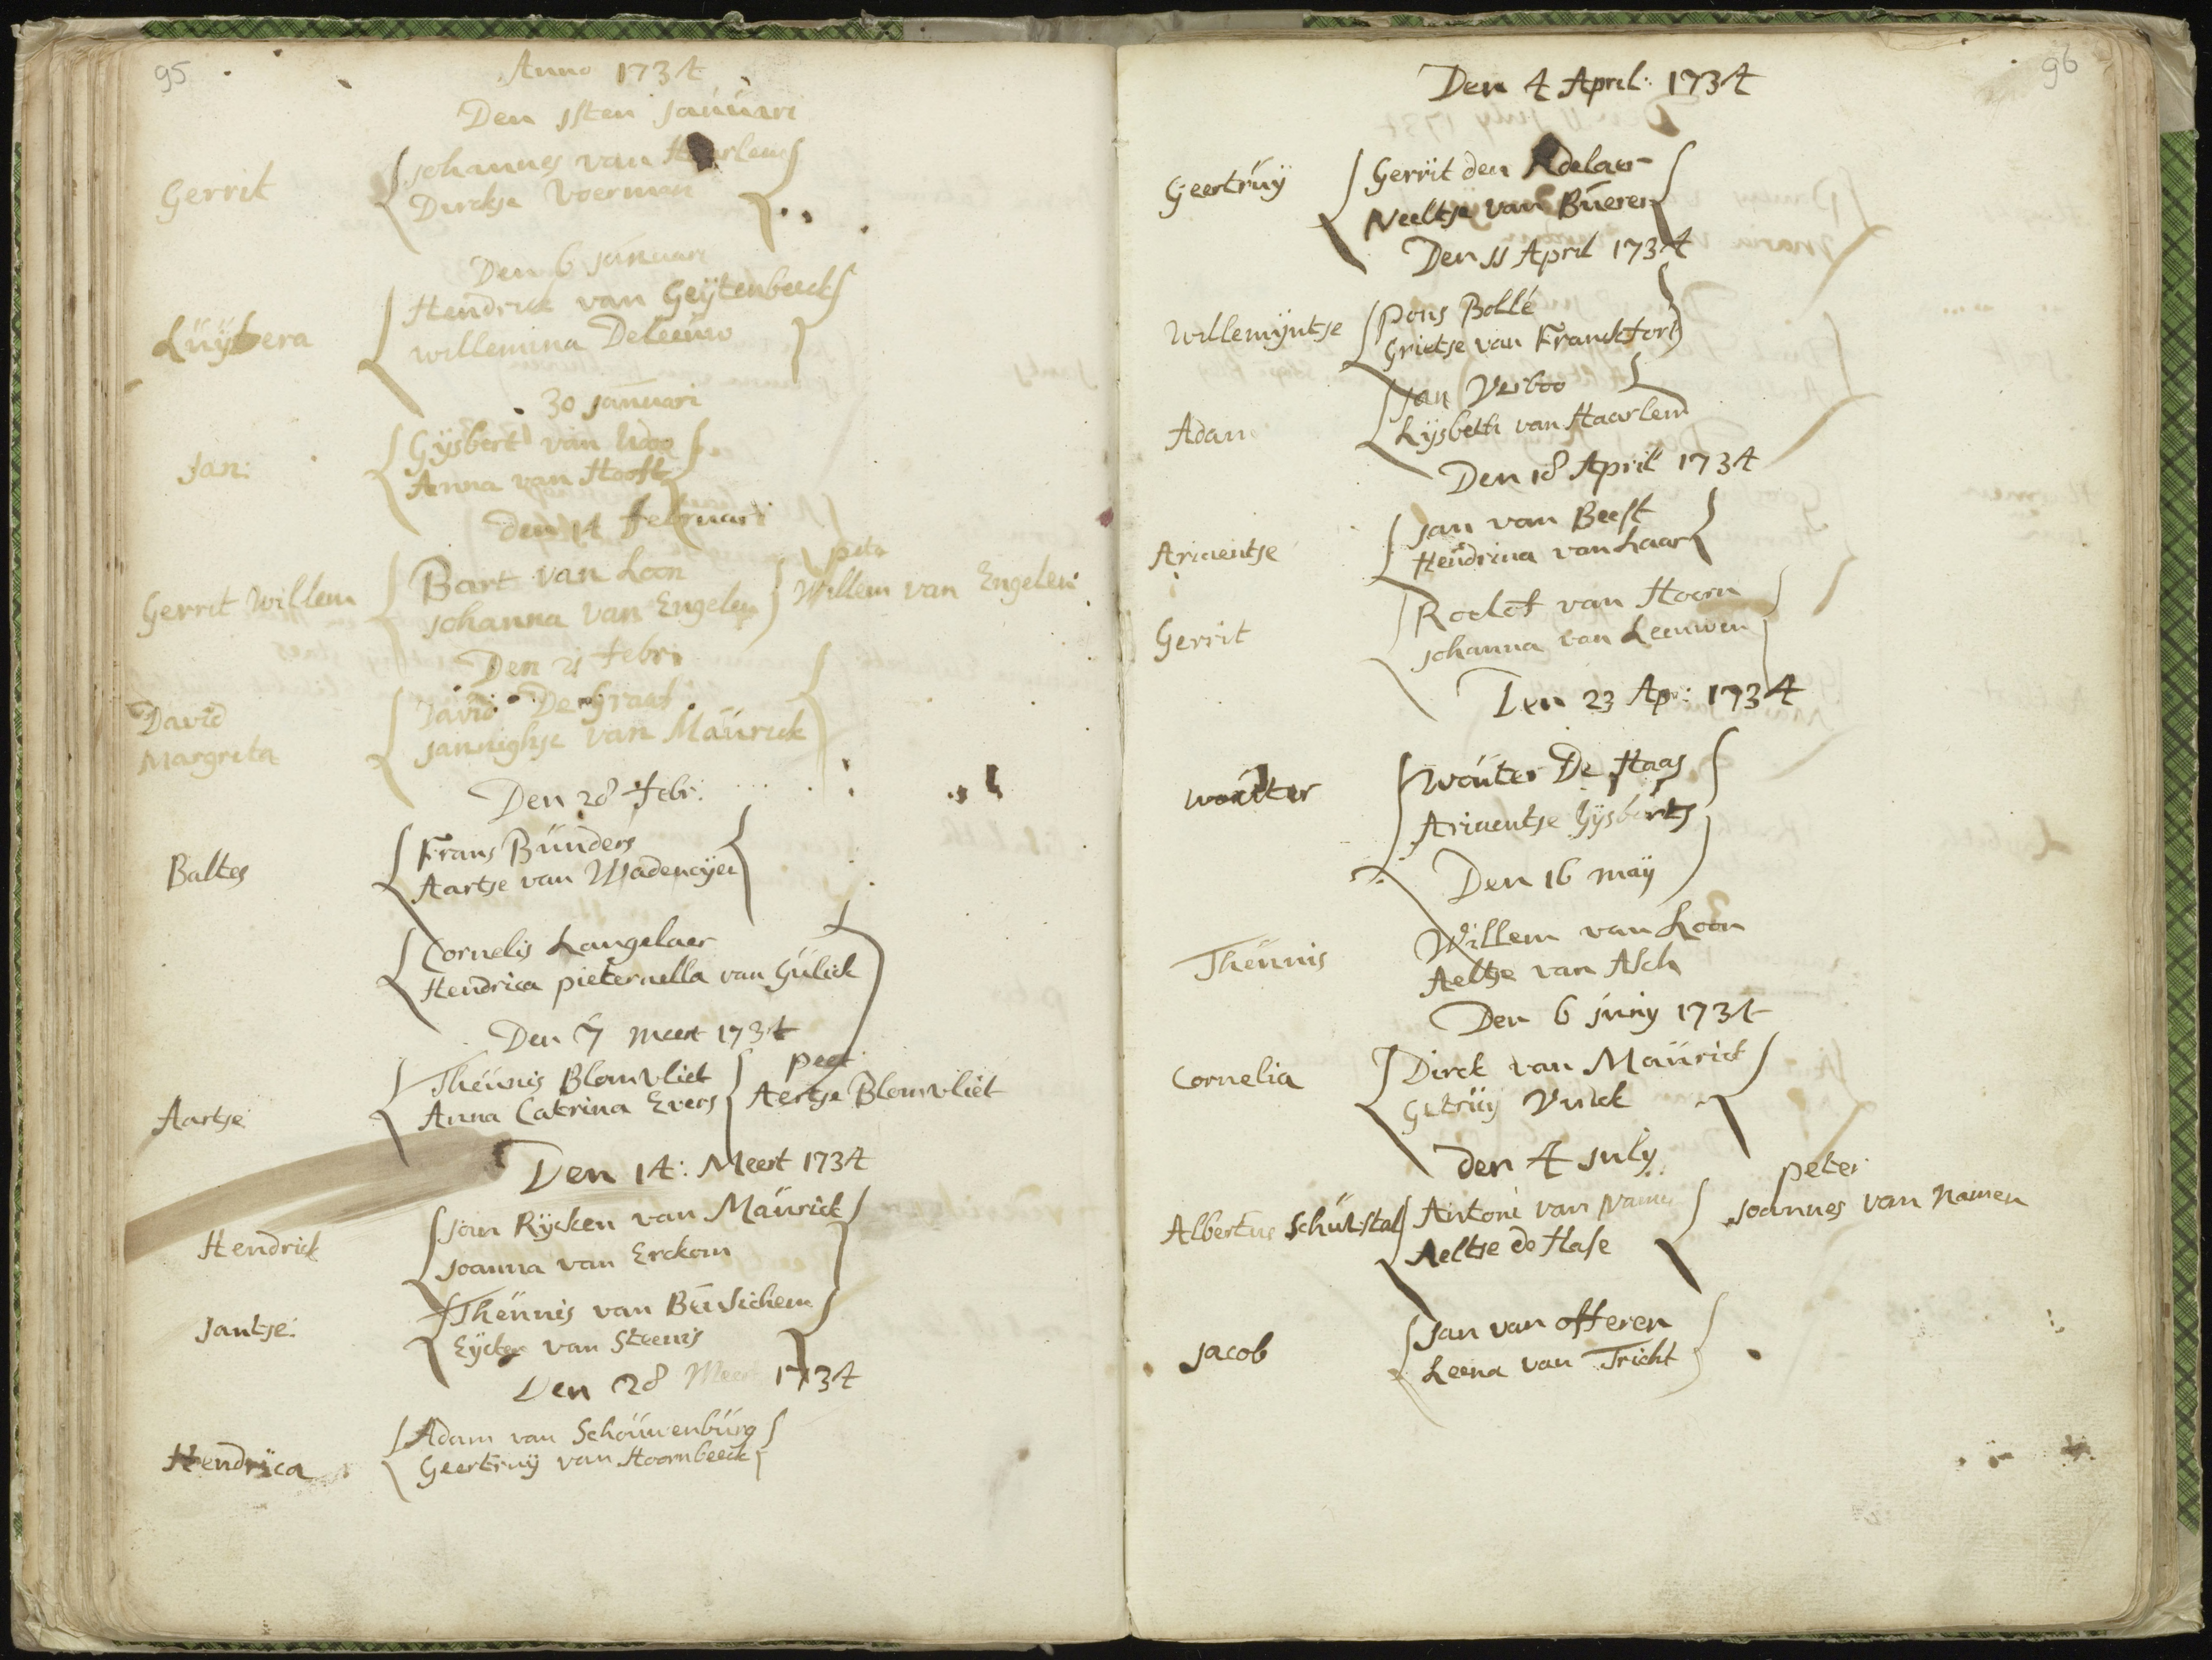 95
Anno 1734
Den 1sten Januari
Gerrit
Johannes van Haarlem
Dirckje Voerman
Den 6 Januari
Luÿbera
Hendrick van Geÿtenbeeck
Willemina De Leeuw
30 Januari
Jan:
Gÿsbert van
Anna van Hooft
den 14 Februari
Gerrit Willem
Bart van Loon
Johanna van Engelen
pete
Willem van Engelen
Den 21 Febr:
David
Margreta
David De Graaf
Jannighje van Maürick
Den 28 Febr:
Baltes
Frans Bünders
Aartje van Wadenoÿen
Cornelis Langelaer
Hendrica pieternella van Gülick
Den 7 Meert 1734
Aartje
Theünis Blomvliet
Anna Catrina Evers
peet
Aertje Blomvliet
Den 14: Meert 1734
Hendrick
Jan Rÿcken van Maürick
Joanna van Erckom
Jantje:
Theünis van Beüsichem
Eÿcken van Steenis
Den 28 Meert 1734
Hendrÿca
Adam van Schoüwenbürg
Geertruÿ van Hoornbeeck
96
Den 4 April: 1734
Geertrüÿ
Gerrit den Adelaer
Neeltje van Büeren
Den 11 April 1734
Willemÿntje
Pons Bollé
Grietje van Franckfort
Adam
Jan Verboo
Lÿsbeth van Haarlem
Den 18 April 1734
Ariaentje
Jan van Beest
Hendrina van Laar
Gerrit
Roelof van Hoorn
Johanna van Leeuwen
Den 23 Apr: 1734
Woutter
Woúter De Haas
Ariaentje Gÿsberts
Den 16 maÿ
Theünis
Willem van Loon
Aeltje van Asch
Den 6 Juny 1734
Cornelia
Dirck van Maürick
Getrüÿ Vierck
den 4 July
Albertus Schuÿstal
Antoni van Namen
Aeltje de Hase
peter
Joannes van Namen
Jacob
Jan van Offeren
Leena van Tricht